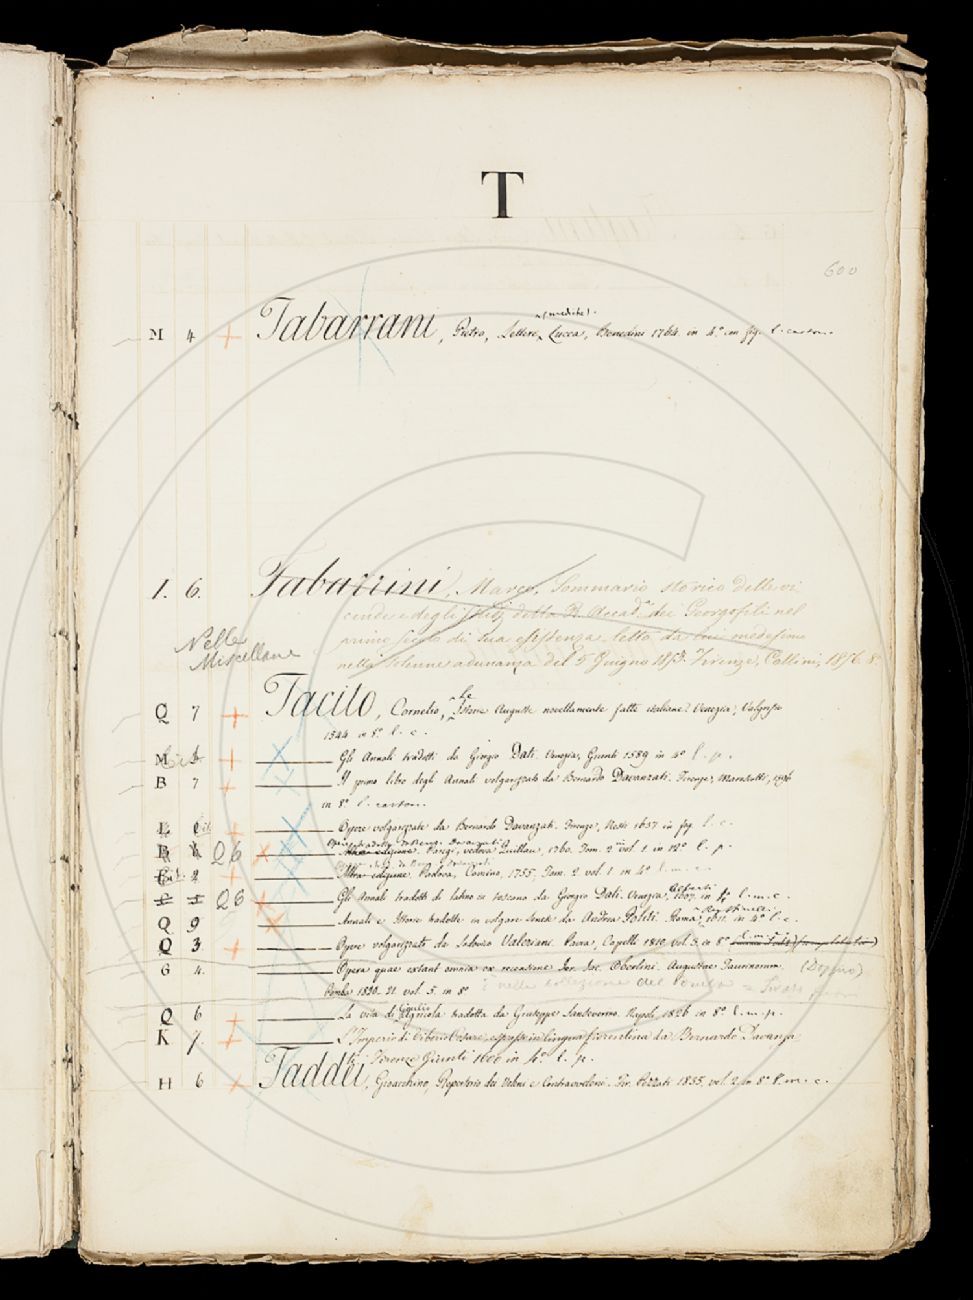 T
600
M 4 Tabarrani, Pietro, Lettere (mediche). Lucca, Benedini 1764. in 4.° con fig. l. carton.
I. 6. Tabarrini, Marco, Sommario storico delle vi
cende e degli studj della R. Accad.a dei Georgofili nel
primo secolo di sua esistenza letto da lui medesimo
nella solenne adunanza del 5 Giugno 1853. Firenze, Cellini, 1856. 8.°
Nelle
Miscellane
Q 7 Tacito, Cornelio, Le Istorie Auguste novellamente fatte italiane. Venezia, Valgrisi
1544 in 8.° l. c.
M Gli Annali tradotti da Giorgio Dati. Venezia, Giunti 1589 in 4.° l. p.
B 7 Il primo libro degli Annali volgarizzato da Bernardo Davanzati. Firenze, Marescotti, 1596
in 8.° l. carton.
Opere volgarizzate da Bernardo Davanzati. Firenze, Nesti 1637 in fog. l. c.
Q6 Altra edizione. Parigi, vedova Quillau, 1760. Tom. 2 vol. 1 in 12.° l. p.
Altra edizione. Padova, Comino, 1755. Tom. 2 vol. 1. in 4.° l. m. c.
Q6 Gli Annali tradotti di latino in toscano da Giorgio Dati. Venezia, Alberti 1607. in l. m. c.
Q 9 Annali e Istorie tradotte in volgare senese da Andrea Politi. Roma, 1611. in 4.° l. c.
Q 3 Opere volgarizzate da Lodovico Valeriani. Pavia, Capelli 1810. vol. 5. in 8.°
G 4. Opera quae extant omnia ex recensione Jer. Jac. Oberlini. Augustae Taurinorum. (Doppio)
Pomba 1820-21. vol. 5. in 8.° è nella collezione del Pomba
Q 6 La vita di Giulio Agricola tradotta da Giuseppe Sanseverino. Napoli 1826 in 8.° l. m. p.
K 7. L'Imperio di Tiberio Cesare, espresso in lingua fiorentina da Bernardo Davanza
ti. Firenze Giunti 1600 in 4.° l. p.
H 6 Taddei, Gioacchino, Repertorio dei Veleni e Contravveleni. Fir. Pezzati 1835. vol. 2 in 8.° l. m. c.